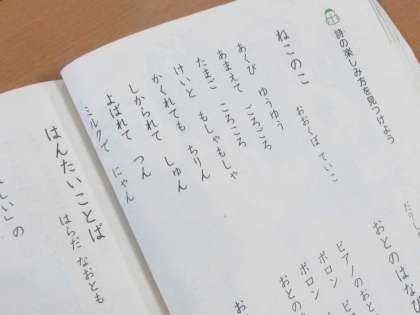 詩の楽しみ方を見つけよう
ねこのこ
おおくぼ ていこ
あくび ゆうゆう
あまえて ごろごろ
たまご ころころ
けいと もしゃもしゃ
かくれても ちりん
しかられて しゅん
よばれて つん
ミルクで にゃん
はんたいことば
はらだ なおとも
しい」の
おとのはなび
ピアノのおと
ポロン
ポロン
おとの
お